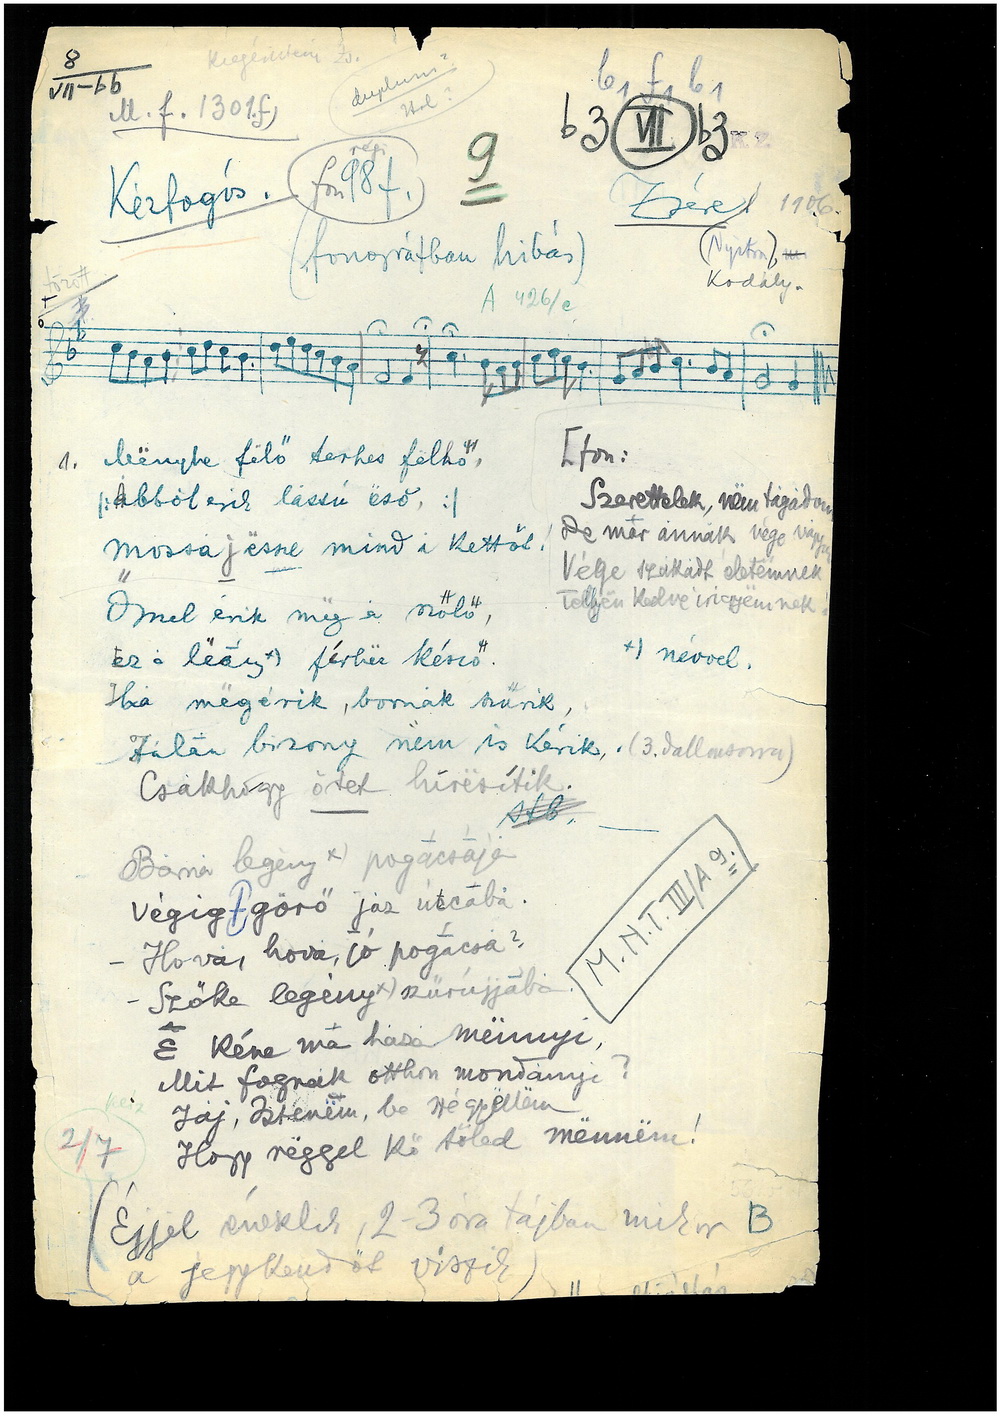 8
VII-bb
Kiegészítem Zs.
duplum?
Hol?
M. f. 1301.f)
b1 f1 b1
b3 VII b3
K. Z.
régi
fon 98f.
9
Kézfogós.
Zsére 1906.
(fonográfban hibás)
(Nyitra)
Kodály.
A 426/c
törött
1. Mënybe félő terhes felhő,
|:Abból esik lassú ëső, :|
Mossa jësne mind a kettőt!
Ömel érik még a szőlő,
Ez a lëány x) férhë késző.
Ha mëgérik, bornak szűrik,
Talán bizony nëm is kérik, (3. dallamsorra)
Csakhogy őtet hírësítik.
stb.
[fon:
Szerettelek, nëm tagadom
De már annak vége vagyon
Vége szakadt életëmnek
x) névvel.
Barna legény x) pogácsája
Végiggörő jaz útcába.
- Hova, hova, jó pogácsa?
- Szőke legény x) szűrújjába.
É kéne má haza mënnyi,
Mit fognak otthon mondanyi?
Jaj, Istenëm, be
Hogy rëggel kő tőled mënnëm!
M.N.T. III/A 9.
2/7
(Éjjel éneklik, 2-3 óra tájban mikor
a jegykendőt viszik)
B